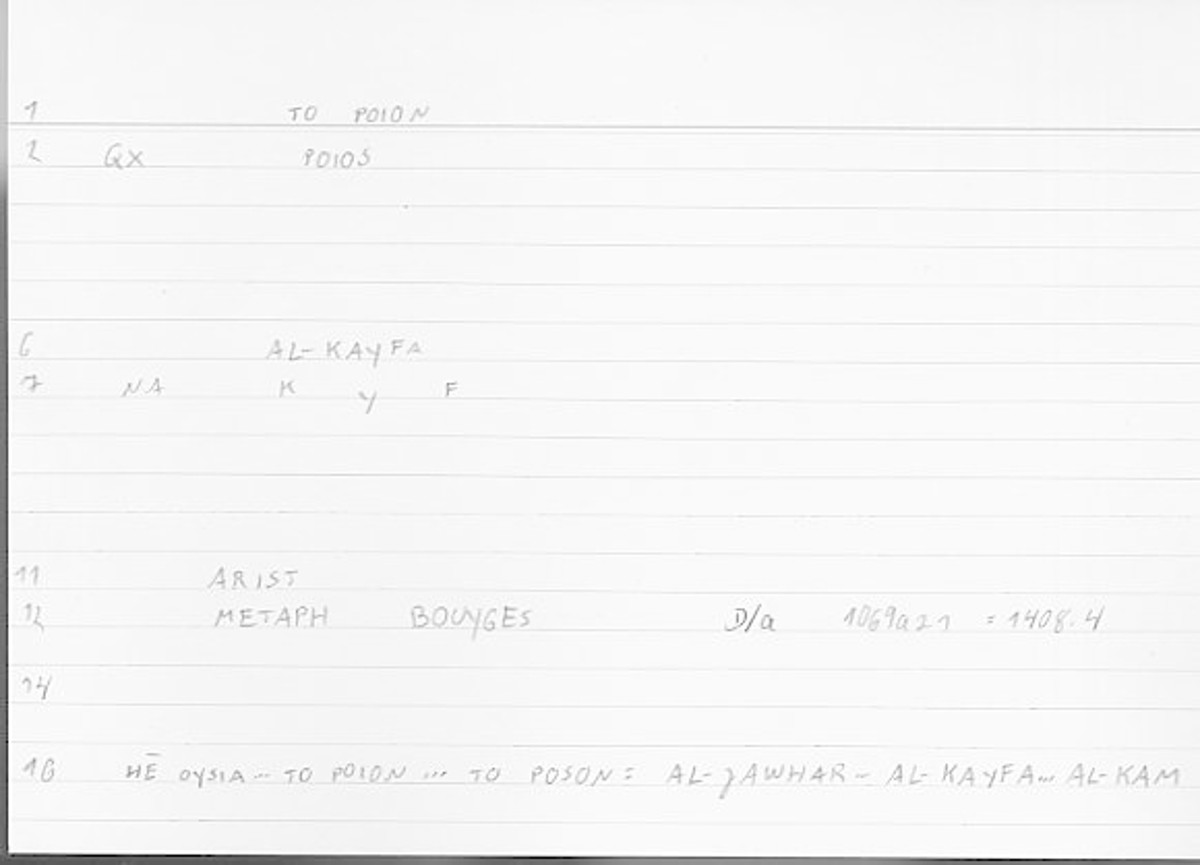 1 TO POION
2 QX POIOS
6 AL-KAYFA
7 NA K Y F
11 ARIST
12 METAPH BOUYGES D/a 1069a21 = 1408.4
14
16 HĒ OYSIA... TO POION ... TO POSON : AL-JAWHAR... AL-KAYFA... AL-KAM